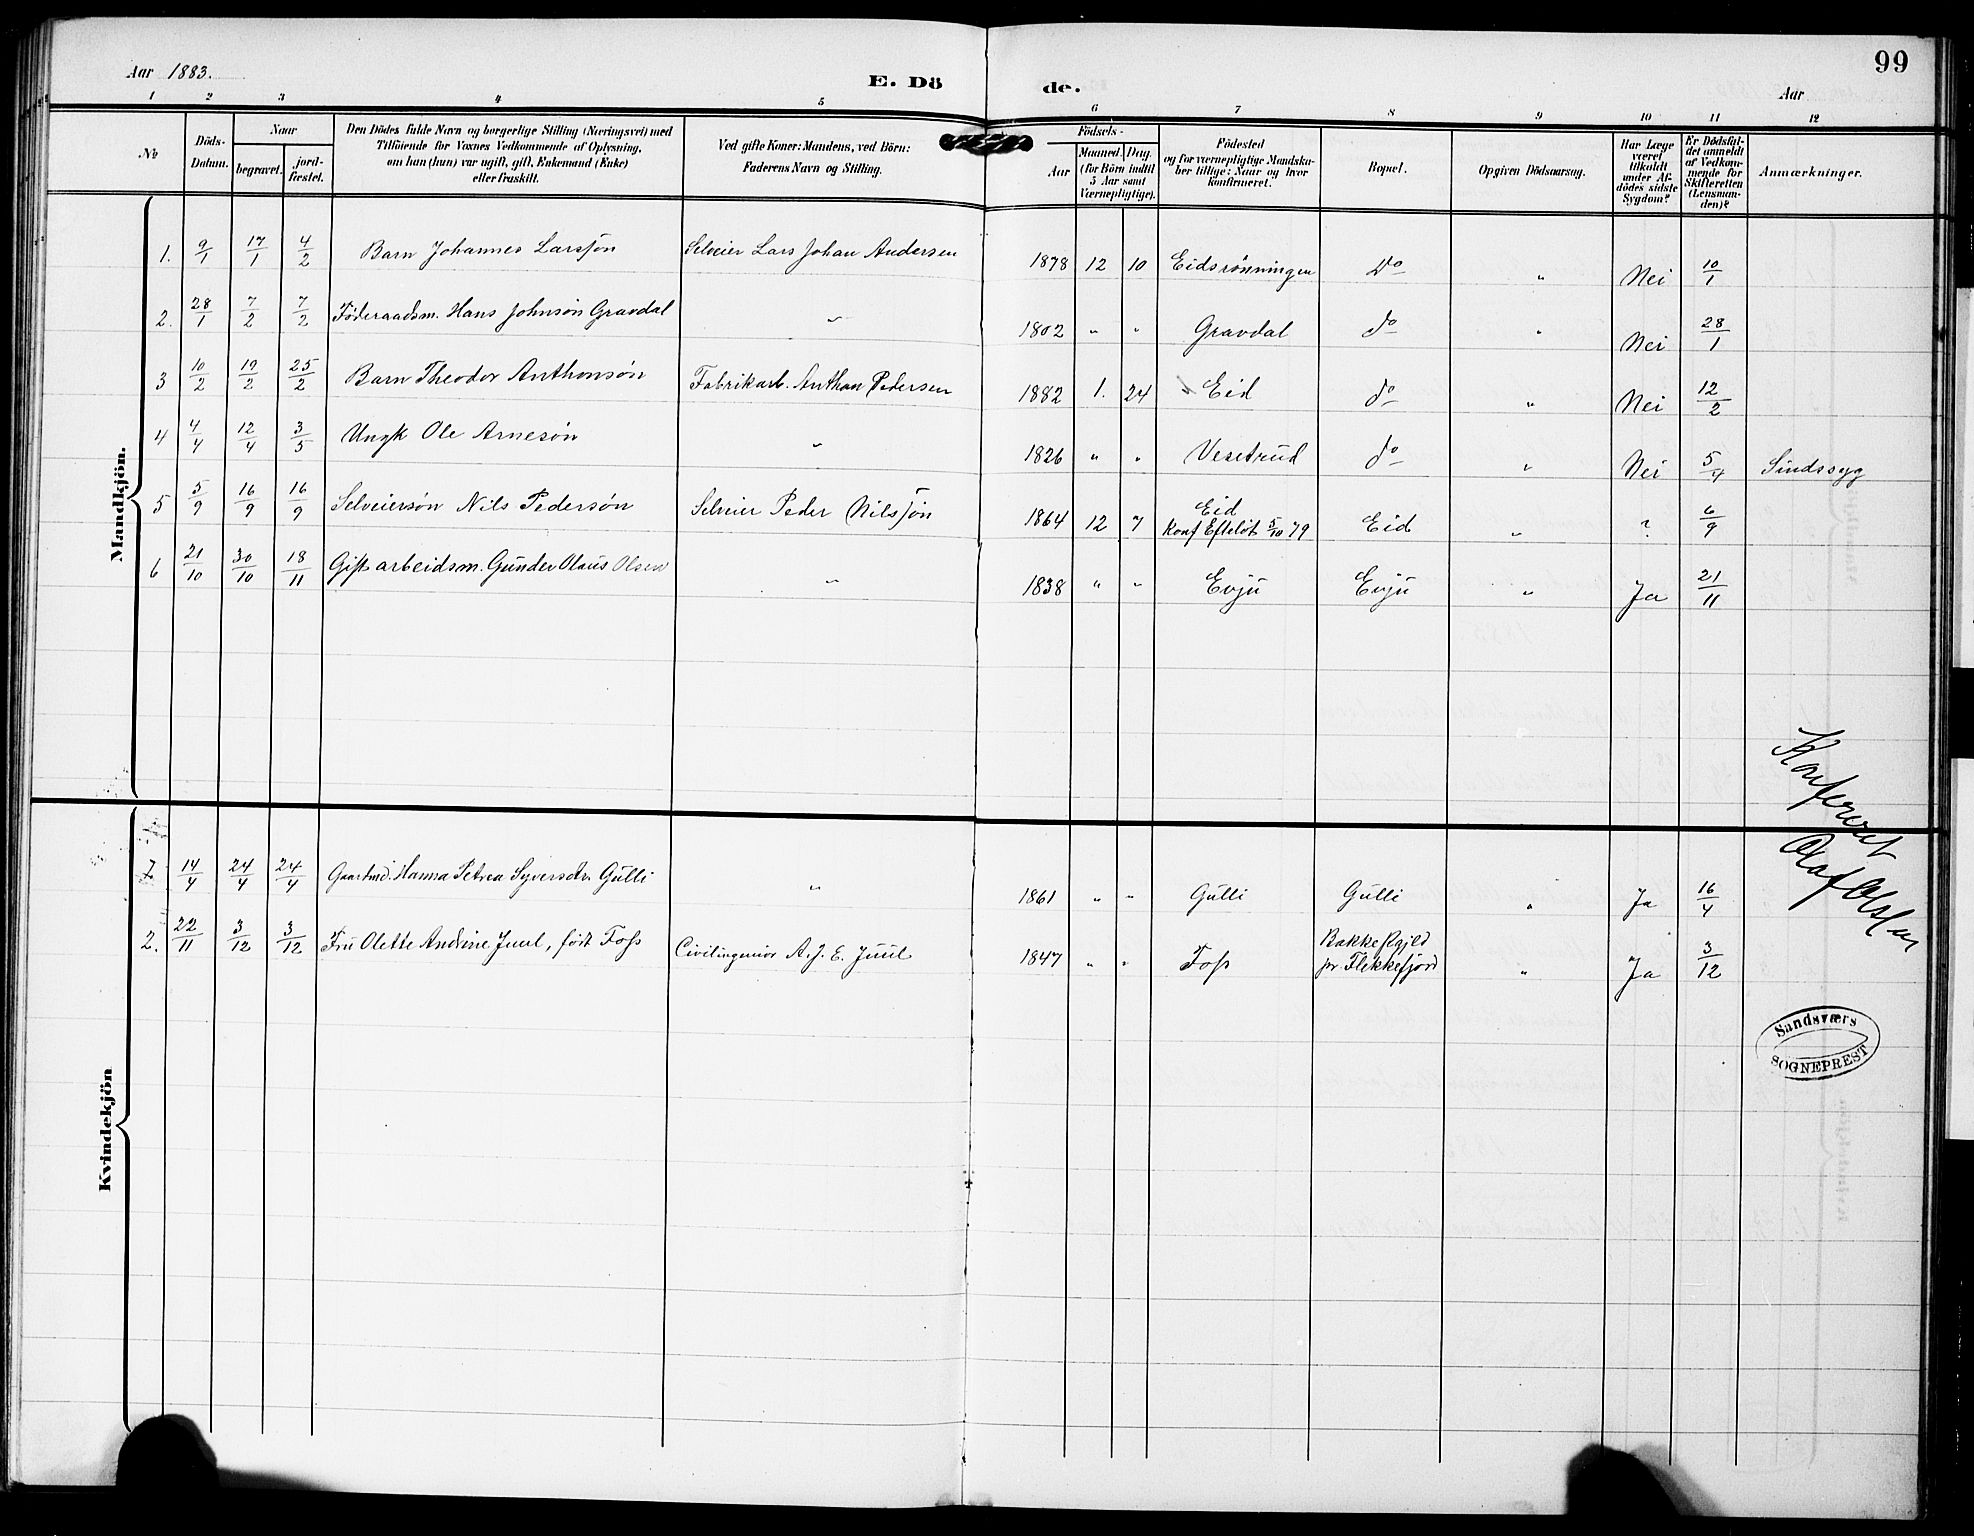 Aar 1883.
E. Dö
de.
Aar
99
1 2 3 4 5 6 7 8 9 10 11 12
No
Döds-Datum.
Naar
begravet.
jord-fæstet.
Den Dödes fulde Navn og borgerlige Stilling (Næringsvei) med
Tilföiende for Voxnes Vedkommende af Oplysning,
om han (hun) var ugift, gift, Enkemand (Enke)
eller fraskilt.
Ved gifte Koner: Mandens, ved Börn:
Faderens Navn og Stilling.
Födsels-
Aar
Maaned. Dag.
(for Börn indtil
5 Aar samt
Værnepligtige).
Födested
og for værnepligtige Mandska-
ber tillige: Naar og hvor
konfirmeret.
Bopæl.
Opgiven Dödsaarsag.
Har Læge
været
tilkaldt
under Af-
dödes sidste
Sygdom?
Er Dödsfal-
det anmeldt
af Vedkom-
mende for
Skifteretten
(Lensman-
den)?
Anmærkninger.
Mandkjön.
1. 9/1 17/1 4/2 Barn Johannes Larssøn Selveier Lars Johan Andersen 1878 12 10 Eidsrønningen Do " Nei 10/1
2. 28/1 7/2 7/2 Føderaadsm. Hans Johnsøn Gravdal " 1802 " " Gravdal do " Nei 28/1
3 10/2 19/2 25/2 Barn Theodor Anthonsøn Fabrikarb. Anthon Pedersen 1882 1. 24 Eid do " Nei 12/2
4 4/4 12/4 3/5 Ungk Ole Arnesøn " 1826 " " Vesetrud do " Nei 5/4 Sindssyg
5 5/9 16/9 16/9 Selveiersøn Nils Pedersøn Selveier Peder Nilssøn 1864 12 7 Eid
Konf Efteløt 5/10 79 Eid " ? 6/9
6 21/10 30/10 18/11 Gift arbeidsm. Gunder Olaus Olsen " 1838 " " Evju Evju " Ja 21/11
Konfereret
Olaf Olsen
Kvindekjön
14/4 24/4 24/4 Gaardmd. Hanna Petrea Syversdtr. Gulli " 1861 " " Gulli Gulli " Ja 16/4
2. 22/11 3/12 3/12 Fru Olette Andrine Juul, født Foss Civilingeniør A. J. E. Juul 1847 " " Foss Bakke Pgjeld
pr. Flekkefjord " Ja 3/12
Sandsværs
SOGNEPREST